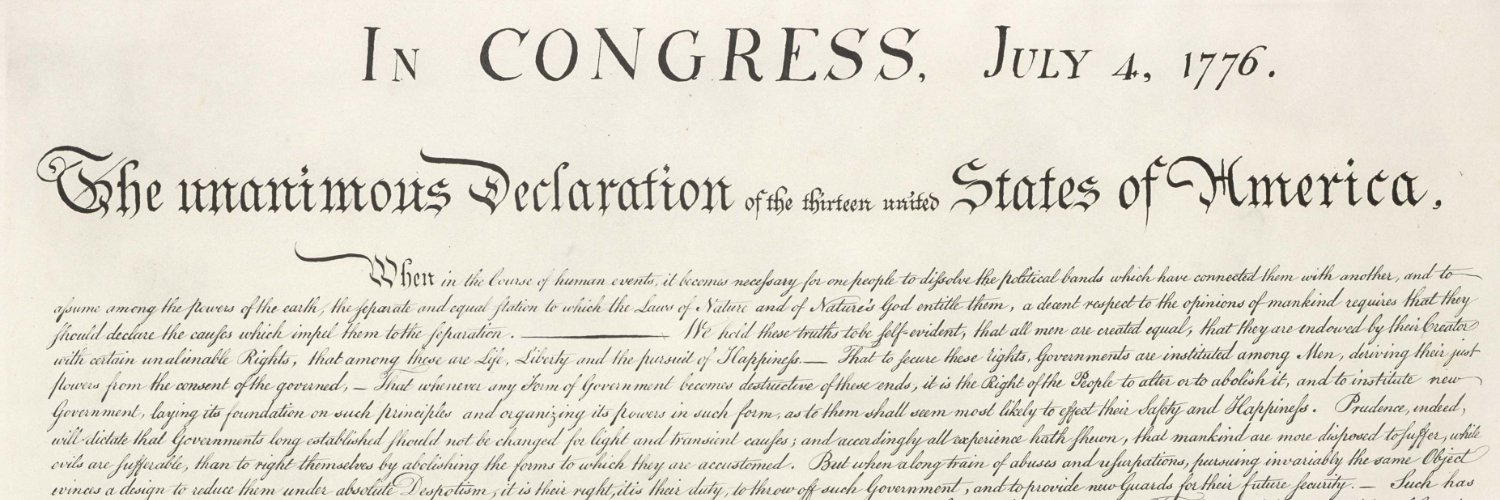 In CONGRESS, July 4, 1776.
The unanimous Declaration of the thirteen united States of America,
When in the Course of human events, it becomes neceſsary for one people to diſsolve the political bands which have connected them with another, and to
aſsume among the powers of the earth, the ſeparate and equal ſtation to which the Laws of Nature and of Nature's God entitle them, a decent respect to the opinions of mankind requires that they
ſhould declare the cauſes which impel them to the ſeparation. — We hold these truths to be ſelf-evident, that all men are created equal, that they are endowed by their Creator
with certain unalienable Rights, that among these are Life, Liberty and the pursuit of Happineſs.— That to secure these rights, Governments are instituted among Men, deriving their just
powers from the consent of the governed, — That whenever any Form of Government becomes destructive of these ends, it is the Right of the People to alter or to abolish it, and to institute new
Government, laying its foundation on such principles and organizing its powers in such form, as to them shall seem most likely to effect their Safety and Happineſs. Prudence, indeed,
will dictate that Governments long established ſhould not be changed for light and transient cauſes; and accordingly all experience hath ſhewn, that mankind are more disposed to ſuffer, while
evils are ſufferable, than to right themselves by abolishing the forms to which they are accustomed. But when a long train of abuses and uſurpations, pursuing invariably the same Object
evinces a design to reduce them under absolute Despotism, it is their right, it is their duty, to throw off such Government, and to provide new Guards for their future security. — Such has